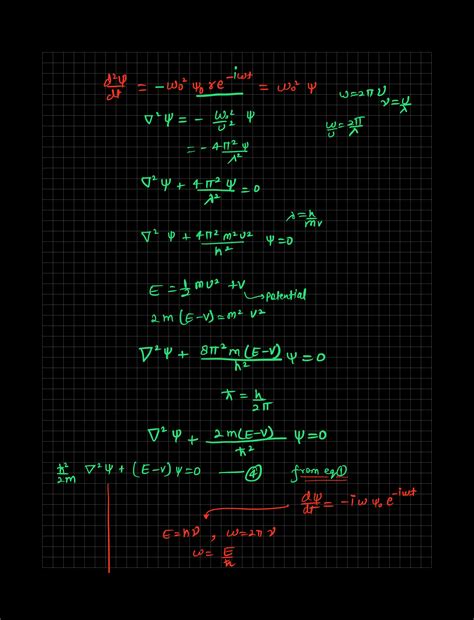 d²ψ/dt = -ω₀² ψ₀ r e^-iωt = ω₀² ψ
ω=2πν
ν=υ/λ
∇²ψ = - ω₀²/υ² ψ
ω/υ = 2π/λ
= -4π²ψ/λ²
∇²ψ + 4π²ψ/λ² = 0
λ = h/mv
∇²ψ + 4π²m²v²/h² ψ=0
E = 1/2 mv² + V
→ potential
2m(E-V) = m²v²
∇²ψ + 8π²m(E-V)/h² ψ = 0
ħ = h/2π
∇²ψ + 2m(E-V)/ħ² ψ=0
ħ²/2m ∇²ψ + (E-V)ψ=0 — ④ from eq ①
dψ/dt = -iωψ₀e^-iωt
E=hν , ω=2πν
ω= E/ħ